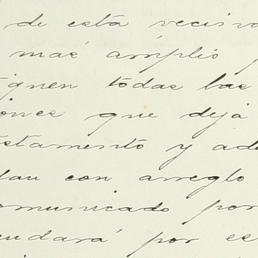 de está vecin
mas ámplio
iguen todas las
iones que dejá
stamento y ade
dan con arreglo
omunicado por
cudará por es